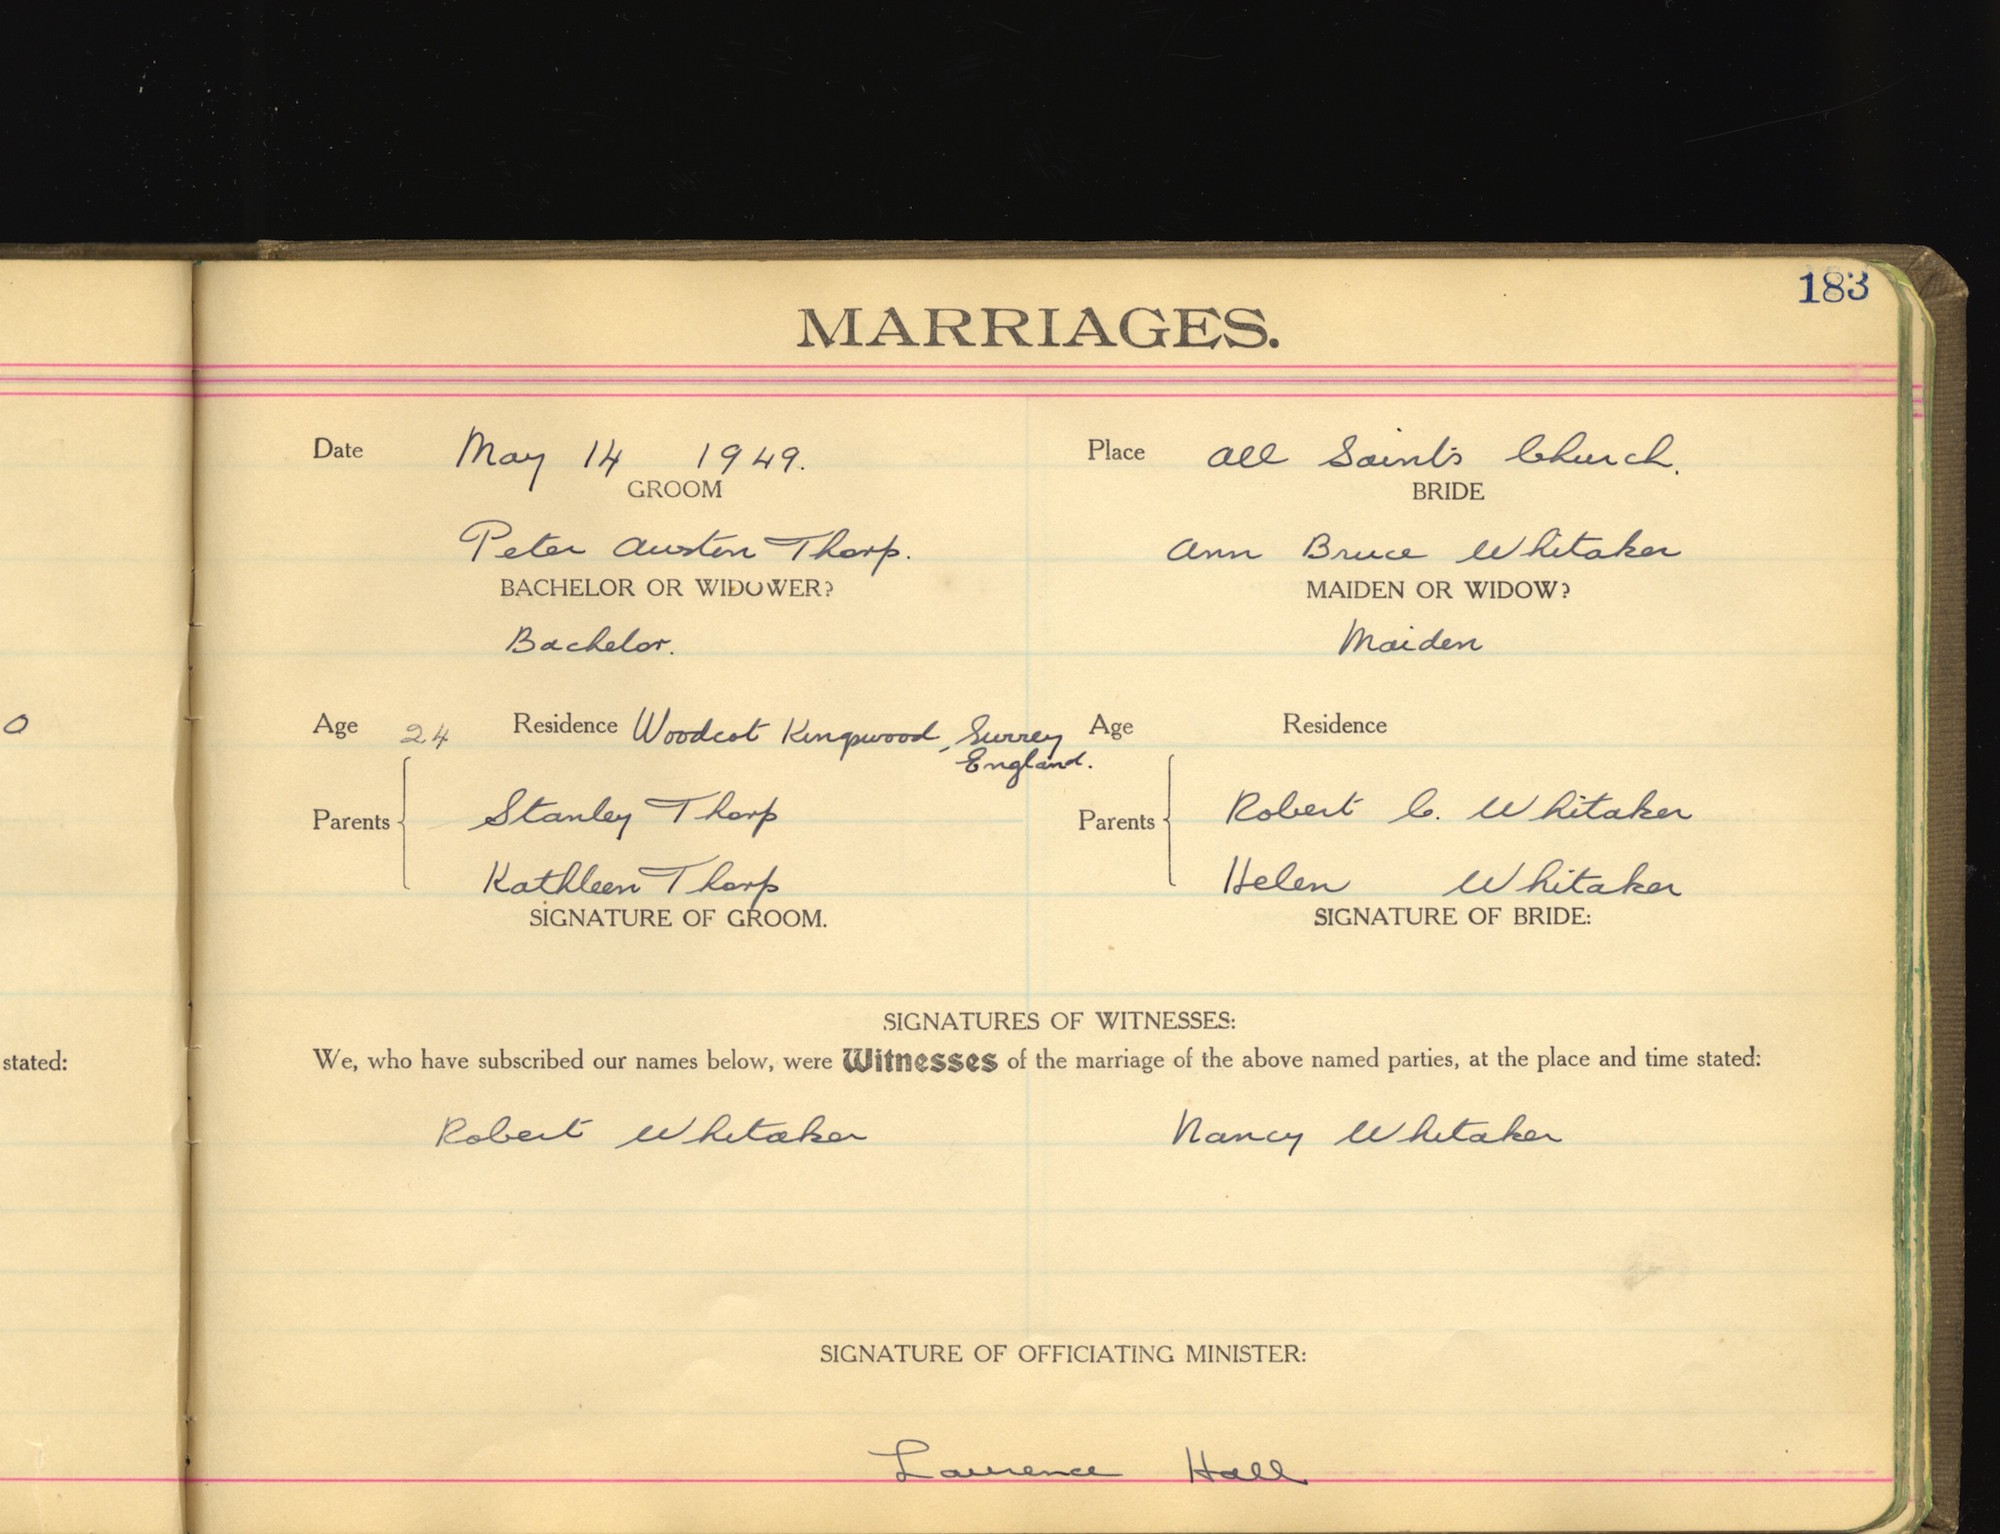 183
MARRIAGES.
Date May 14 1949. Place All Saint's Church.
GROOM BRIDE
Peter Austen Thorp. Ann Bruce Whitaker
BACHELOR OR WIDOWER? MAIDEN OR WIDOW?
Bachelor. Maiden
O
Age 24 Residence Woodcot Kingswood, Surrey Age Residence
England.
Parents Stanley Thorp Parents Robert C. Whitaker
Kathleen Thorp Helen Whitaker
SIGNATURE OF GROOM. SIGNATURE OF BRIDE:
SIGNATURES OF WITNESSES:
stated:
We, who have subscribed our names below, were Witnesses of the marriage of the above named parties, at the place and time stated:
Robert Whitaker Nancy Whitaker
SIGNATURE OF OFFICIATING MINISTER:
Laurence Hall